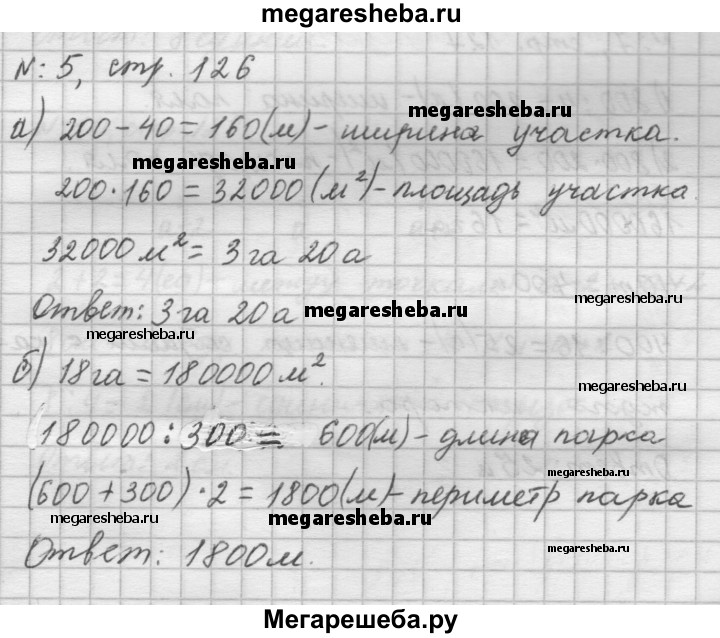 megaresheba.ru
№: 5, стр. 126
megaresheba.ru
а) 200 - 40 = 160(м) - ширина участка.
megaresheba.ru
200 · 160 = 32000 (м²) - площадь участка.
32000 м² = 3 га 20 а
megaresheba.ru
Ответ: 3 га 20 а
megaresheba.ru
megaresheba.ru
б) 18 га = 180000 м².
megaresheba.ru
180000 : 300 = 600(м) - длина парка
(600 + 300) · 2 = 1800(м) - периметр парка
megaresheba.ru
megaresheba.ru
megaresheba.ru
Ответ: 1800 м.
Мегарешеба.ру